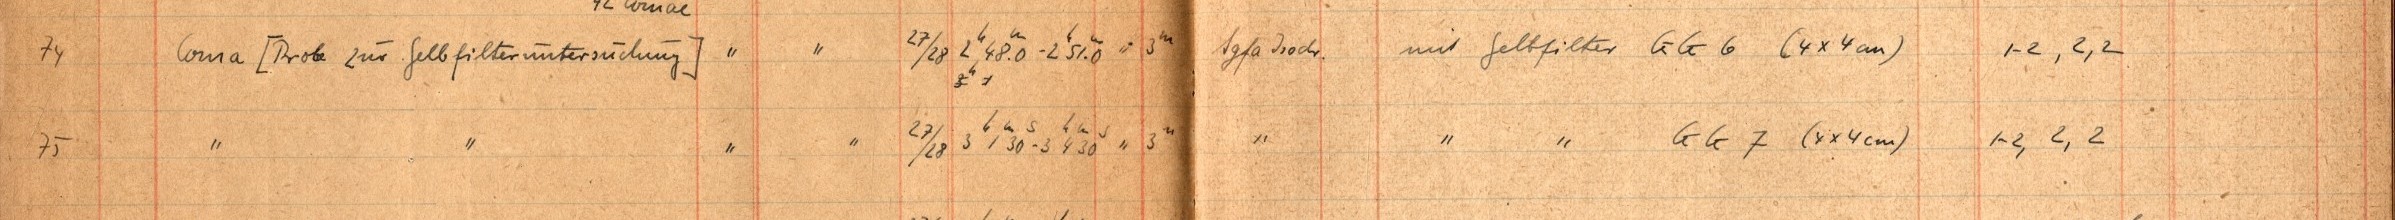 42 Comae
74 Coma [Probe zur Gelbfilteruntersuchung] " " 27/28 2h 48.0m - 2h 51.0m " 3m Agfa Isochr. mit Gelbfilter GG 6 (4x4cm) 1-2, 2, 2
75 " " " " 27/28 3h 1m 30s - 3h 4m 30s " 3m " " " GG 7 (4x4cm) 1-2, 2, 2